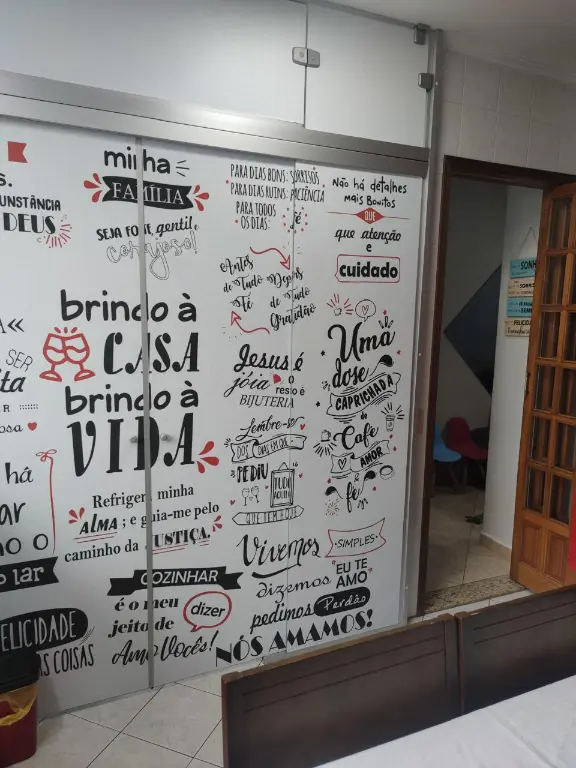 s.
CUNSTÂNCIA
DEUS
A«
SER
ita
R
osa
há
ar
o o
o lar
FELICIDADE
AS COISAS
minha
FAMÍLIA
SEJA forte, gentil,
corajoso!
brindo à
CASA
brindo à
VIDA
Refrigera minha
ALMA; e guia-me pelo
caminho da JUSTIÇA.
COZINHAR
é o meu
jeito de
dizer
Amo Vocês!
PARA DIAS BONS: SORRISOS
PARA DIAS RUINS: PACIÊNCIA
PARA TODOS
OS DIAS:
Fé
Antes
de Tudo
Fé
Depois
de Tudo
Gratidão
Jesus é
jóia
o
resto é
BIJUTERIA
Lembre-se
DOS DIAS EM QUE
PEDIU
TUDO
AQUILO
QUE TEM HOJE
Vivemos
SIMPLES
dizemos
EU TE
AMO
pedimos Perdão
NÓS AMAMOS!
Não há detalhes
mais Bonitos
QUE
que atenção
e
cuidado
Uma
dose
CAPRICHADA
de
Café
AMOR
& fé
SONH
FELICID